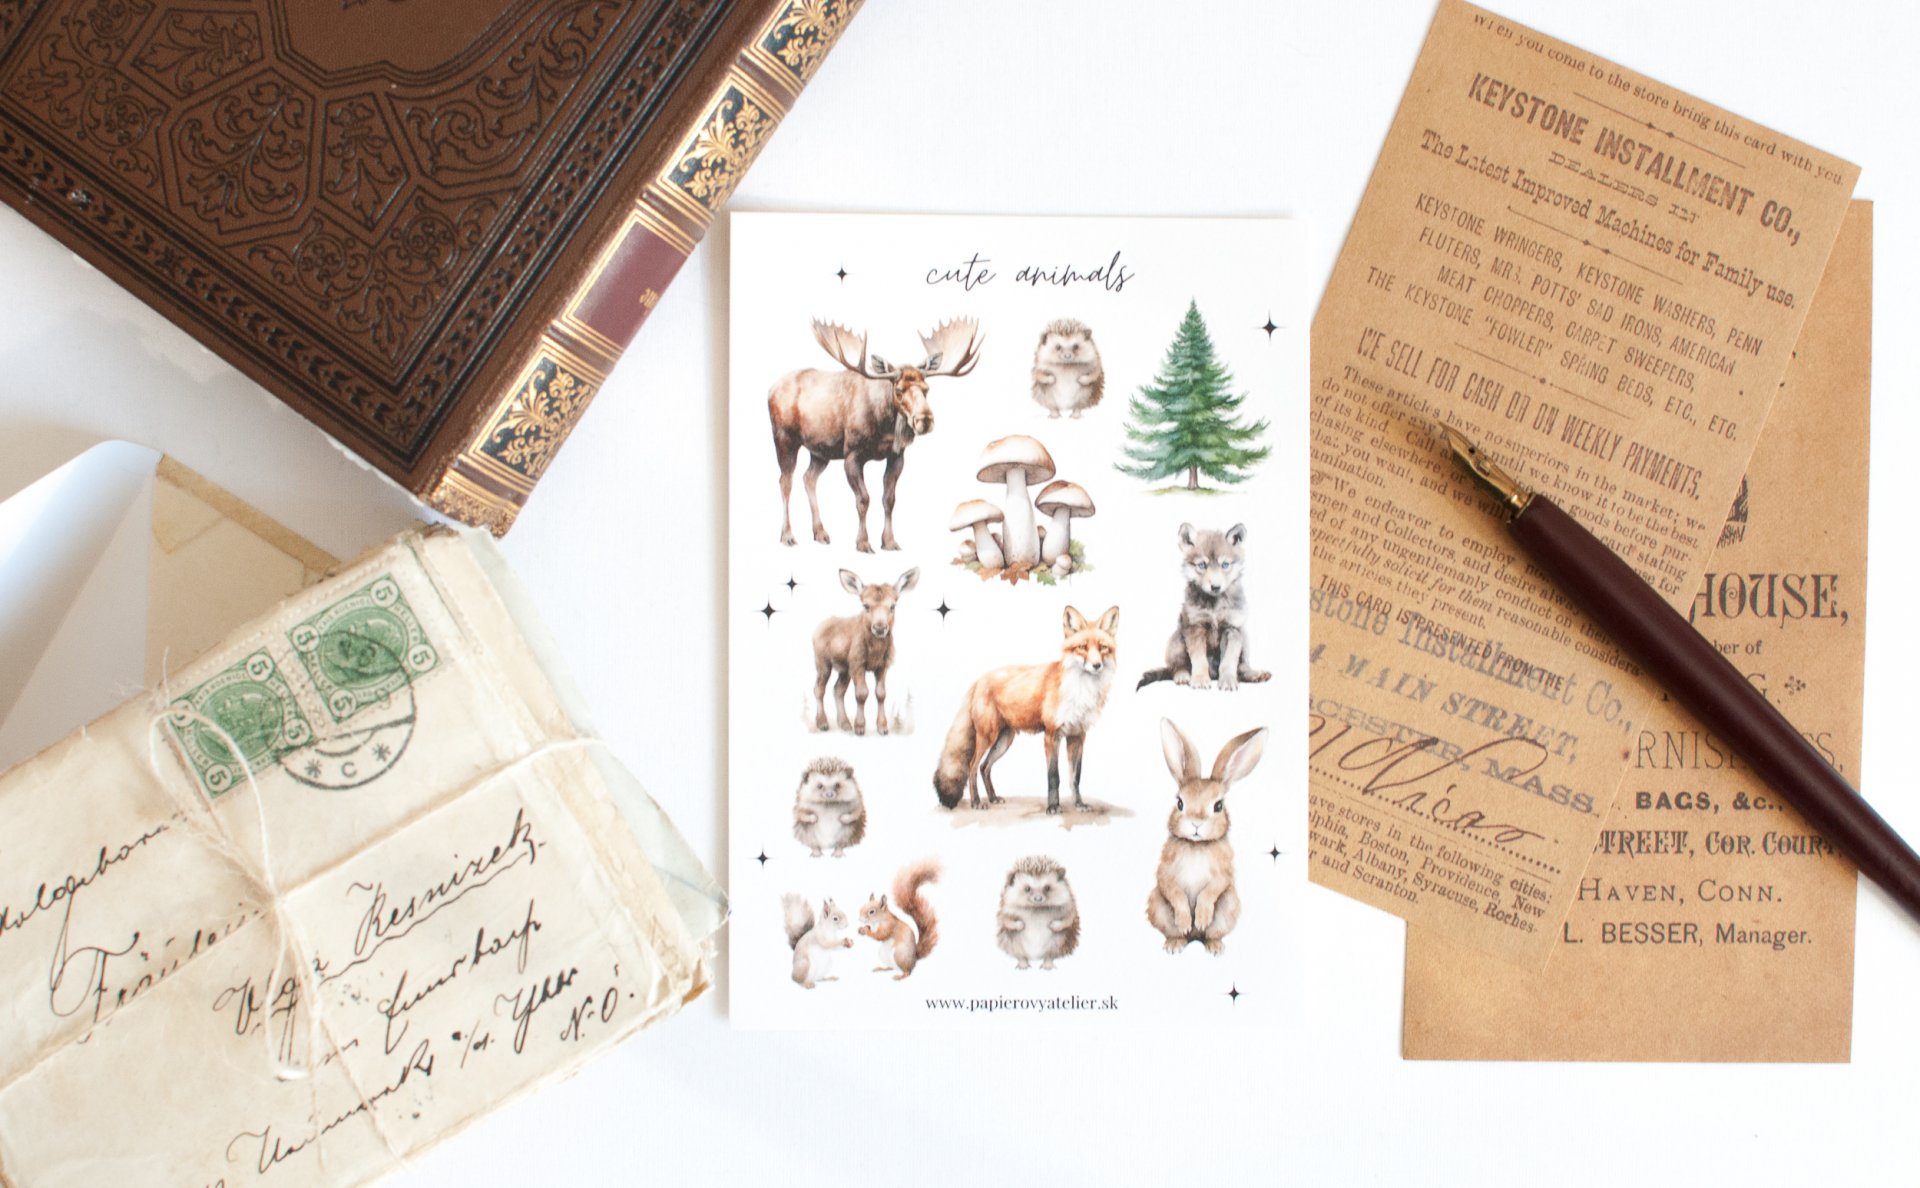 cute animals
www.papierovyatelier.sk
When you come to the store bring this card with you.
KEYSTONE INSTALLMENT CO.,
DEALERS IN
The Latest Improved Machines for Family use.
KEYSTONE WRINGERS, KEYSTONE WASHERS, PENN
FLUTERS, MRS. POTTS' SAD IRONS, AMERICAN
MEAT CHOPPERS, CARPET SWEEPERS,
THE KEYSTONE "FOWLER" SPRING BEDS, ETC., ETC.
WE SELL FOR CASH OR ON WEEKLY PAYMENTS.
These articles have no superiors in the market; we
do not offer any until we know it to be the best
of its kind. Call
elsewhere, or our goods before pur-
you want, and we will card stating
We endeavor to employ
and Collectors, and desire
of any ungentlemanly conduct on
solicit for them reasonable
the articles they present.
THIS CARD IS PRESENTED FROM THE
Installment Co.,
4 MAIN STREET,
MASS.
stores in the following cities:
Boston, Providence, New
Albany, Syracuse, Roches-
and Scranton.
HOUSE,
of
BAGS, &c.,
STREET, COR. COURT,
HAVEN, CONN.
L. BESSER, Manager.
5 5
5 5
C
Fräulein
Resnizek
N.Ö.